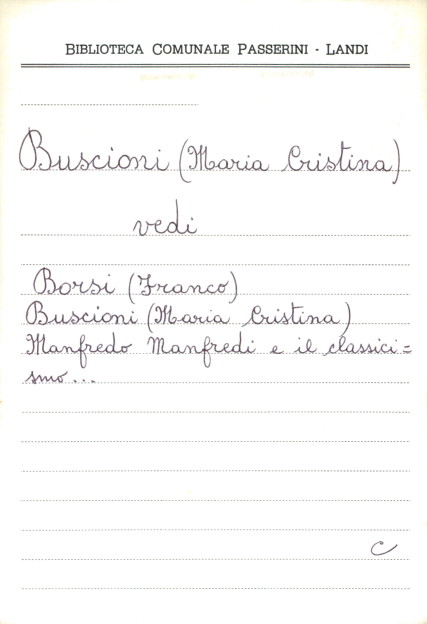 BIBLIOTECA COMUNALE PASSERINI - LANDI
Buscioni (Maria Cristina)
vedi
Borsi (Franco)
Buscioni (Maria Cristina)
Manfredo Manfredi e il classici=
smo...
C